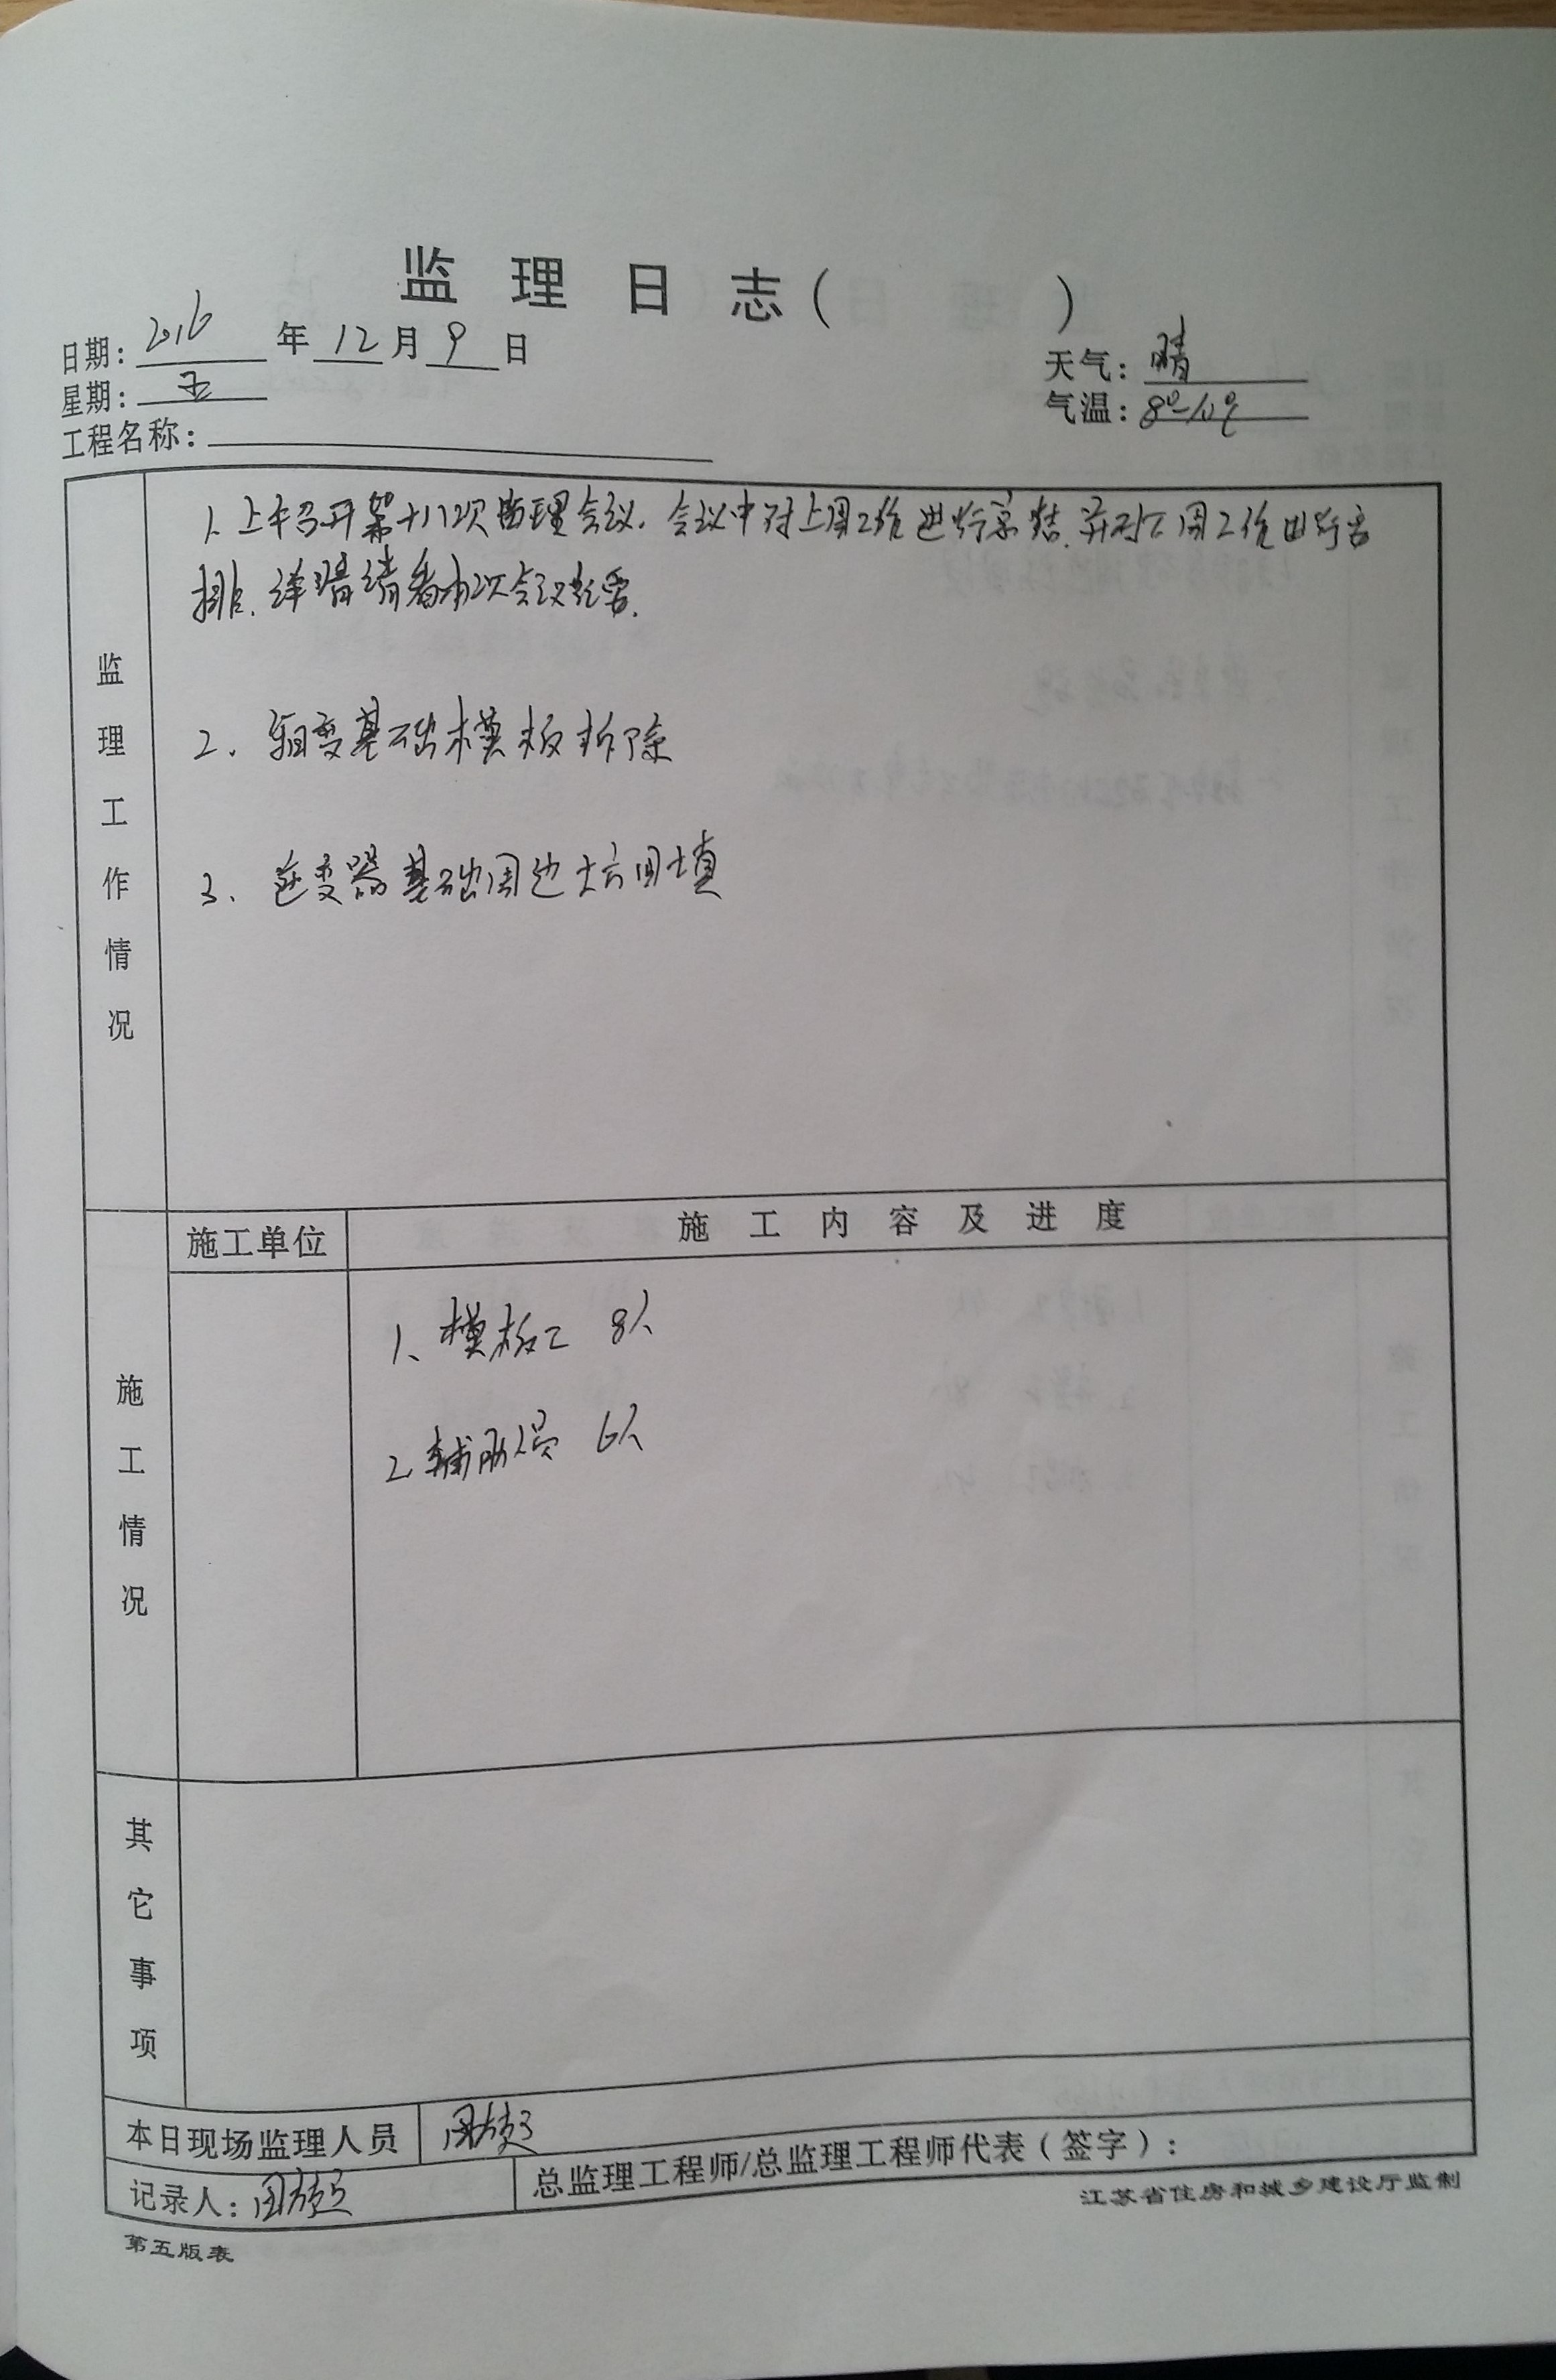 监理日志( )
日期: 2016 年 12 月 9 日
天气: 晴
星期: 五
气温: 8°-10°
工程名称:
监理工作情况
1. 上午召开第十八次监理会议. 会议中对上周工作进行总结. 并对下周工作进行安
排. 详情请看本次会议纪要.
2. 箱变基础模板拆除
3. 变器基础周边土方回填
施工单位
施工内容及进度
施工情况
1、模板工 8人
2、辅助人员 6人
其它事项
本日现场监理人员
记录人:
总监理工程师/总监理工程师代表(签字):
江苏省住房和城乡建设厅监制
第五版表